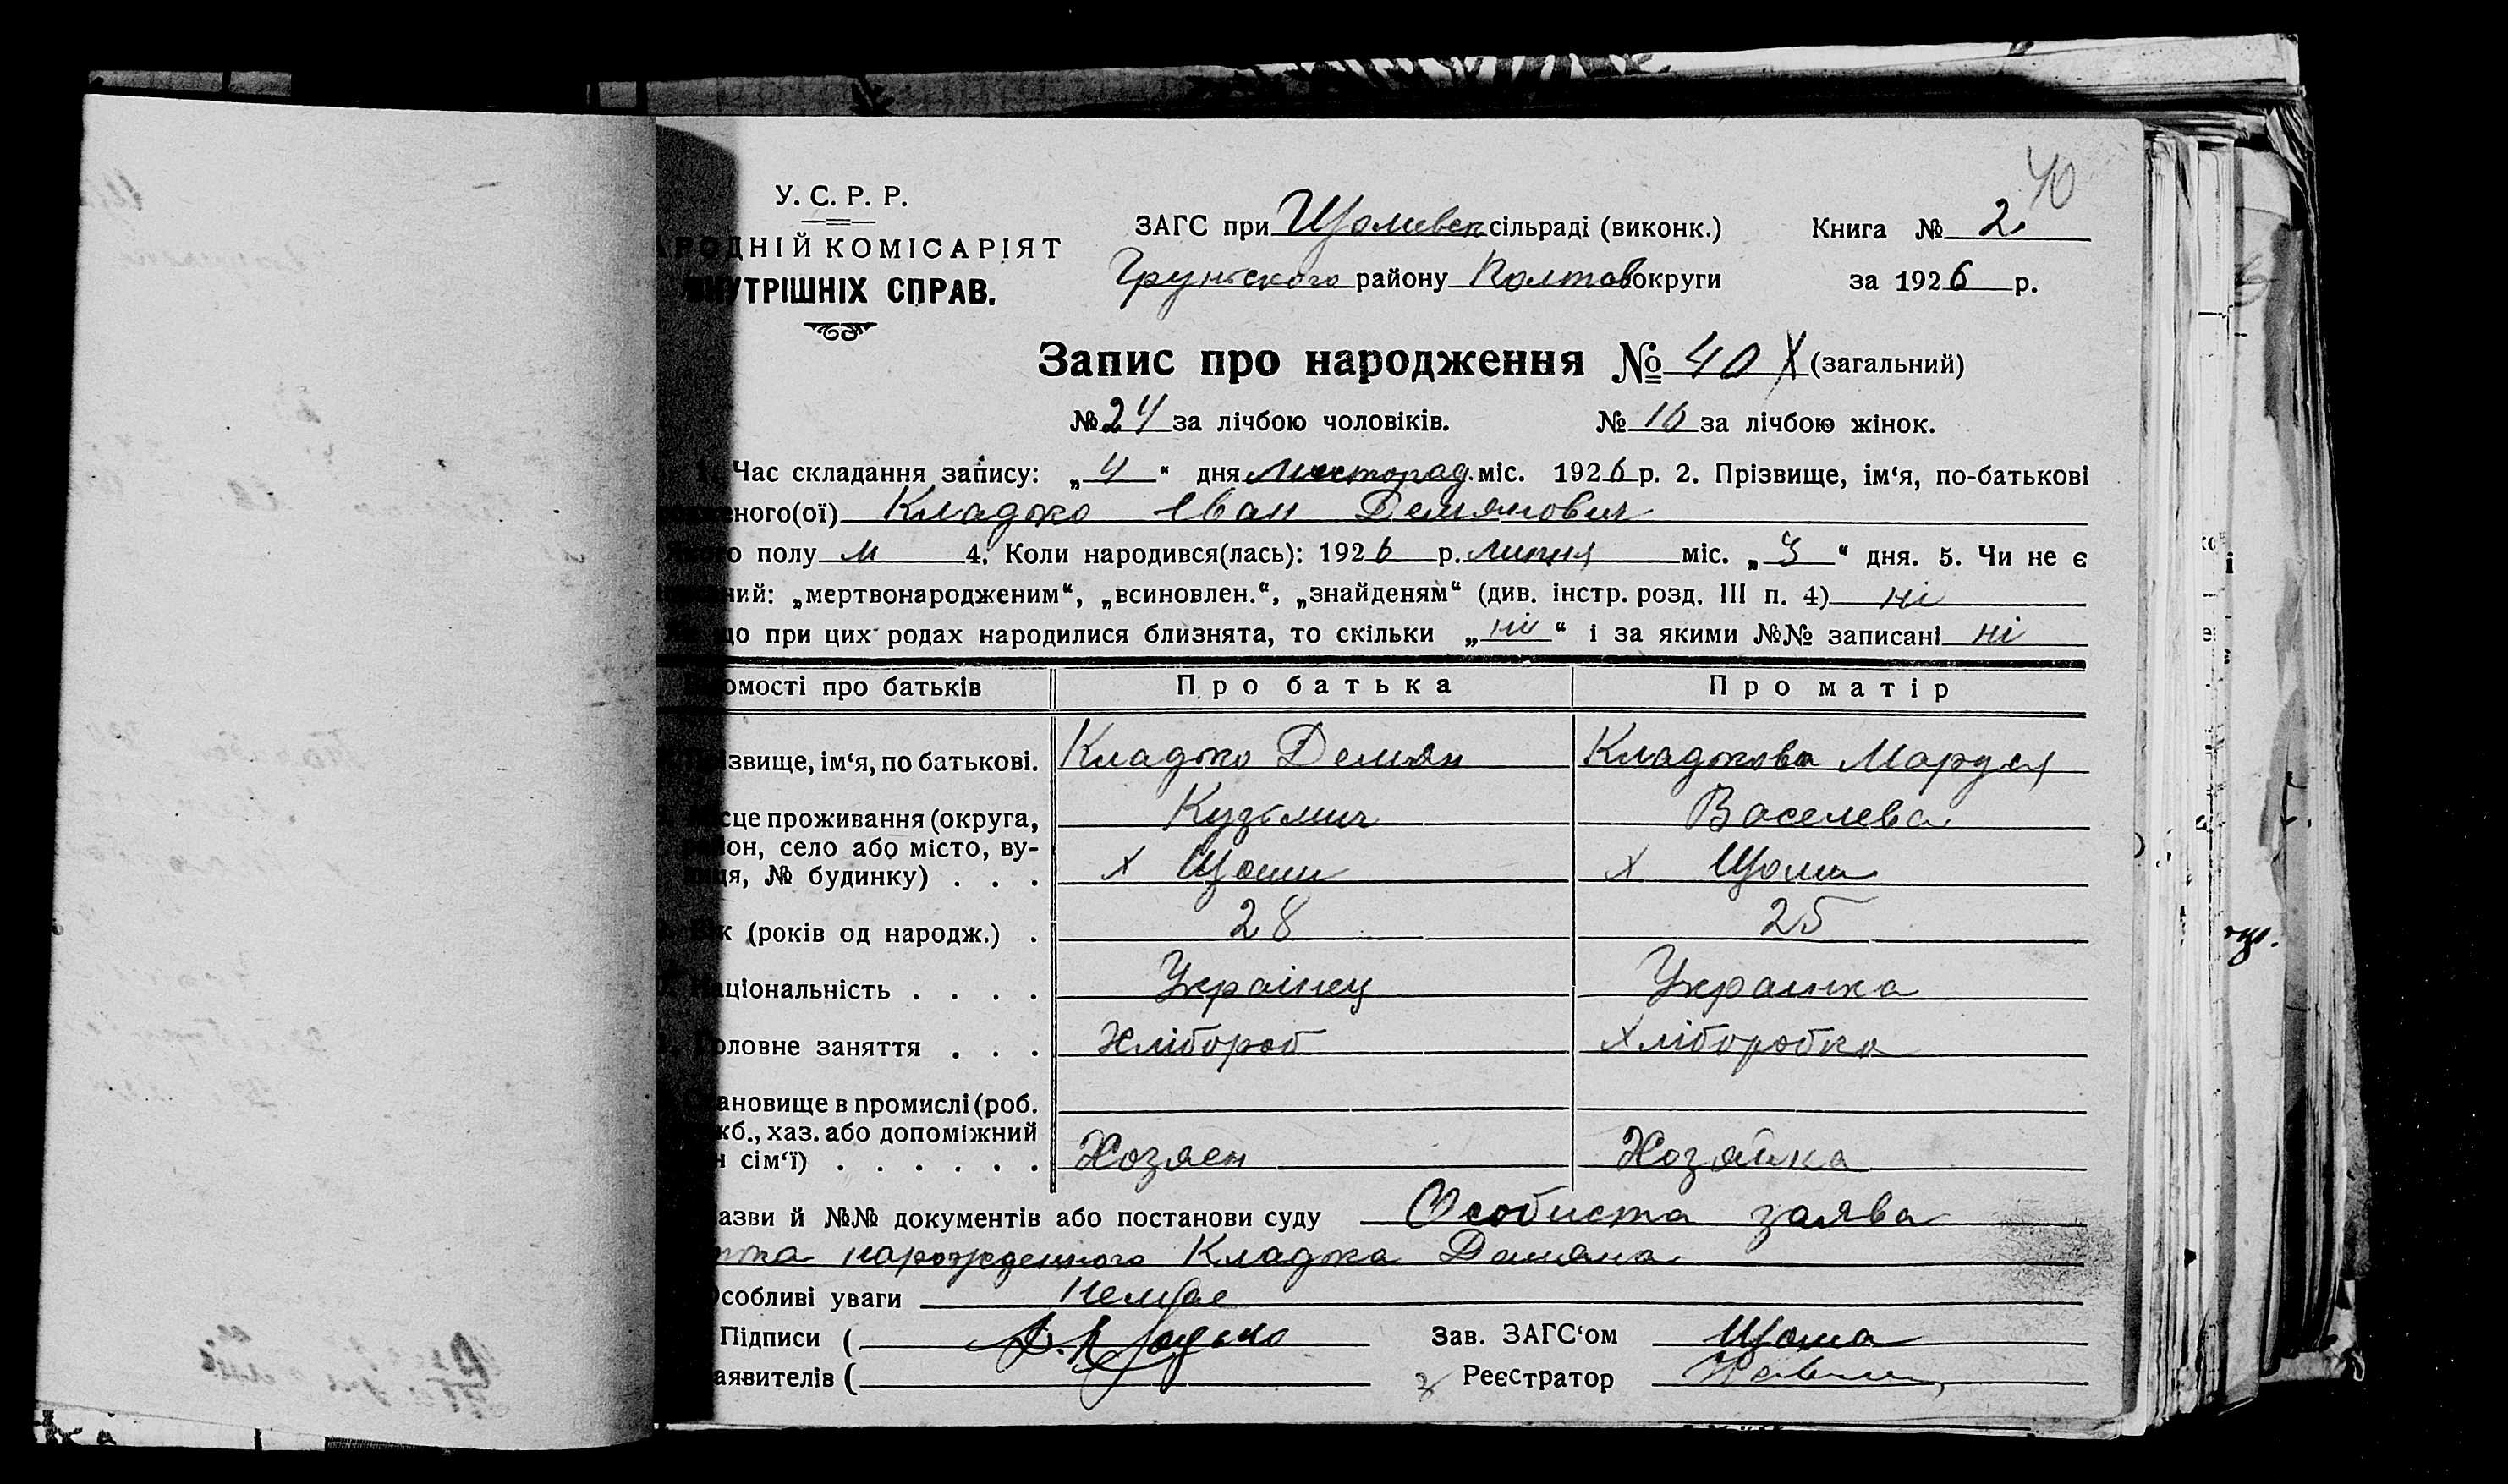 40
У. С. Р. Р.
АРОДНІЙ КОМІСАРІЯТ
ВНУТРІШНІХ СПРАВ.
ЗАГС при сільраді (виконк.) Книга № 2.
Грунського району Полтав округи за 1926 р.
Запис про народження № 40 X (загальний)
№ 24 за лічбою чоловіків. № 16 за лічбою жінок.
1. Час складання запису: „4“ дня листопад. міс. 1926 р. 2. Прізвище, ім‘я, по-батькові
еного(ої) Кладко Іван Демянович
якого полу м 4. Коли народився(лась): 1926 р. липня міс. „3“ дня. 5. Чи не є
ний: „мертвонародженим“, „всиновлен.“, „знайденям“ (див. інстр. розд. III п. 4) ні
що при цих родах народилися близнята, то скільки „ні“ і за якими №№ записані ні
омості про батьків Про батька Про матір
ізвище, ім‘я, по батькові. Кладко Демян Кладкова Маруся
Кузьмич Василева
сце проживання (округа,
йон, село або місто, ву-
ця, № будинку) . . . х Щоми х Щоми
Вік (років од народж.) . 28 25
Національність . . . . Українец Украинка
Головне заняття . . . Хлібороб Хліборобка
ановище в промислі (роб.
жб., хаз. або допоміжний
н сім‘ї) . . . . . . Хозяен Хозяйка
азви й №№ документів або постанови суду Особиста заява
тка нарожденного Кладка Демяна
Особливі уваги Немає
Підписи ( Зав. ЗАГС‘ом Щома
аявителів ( Реєстратор